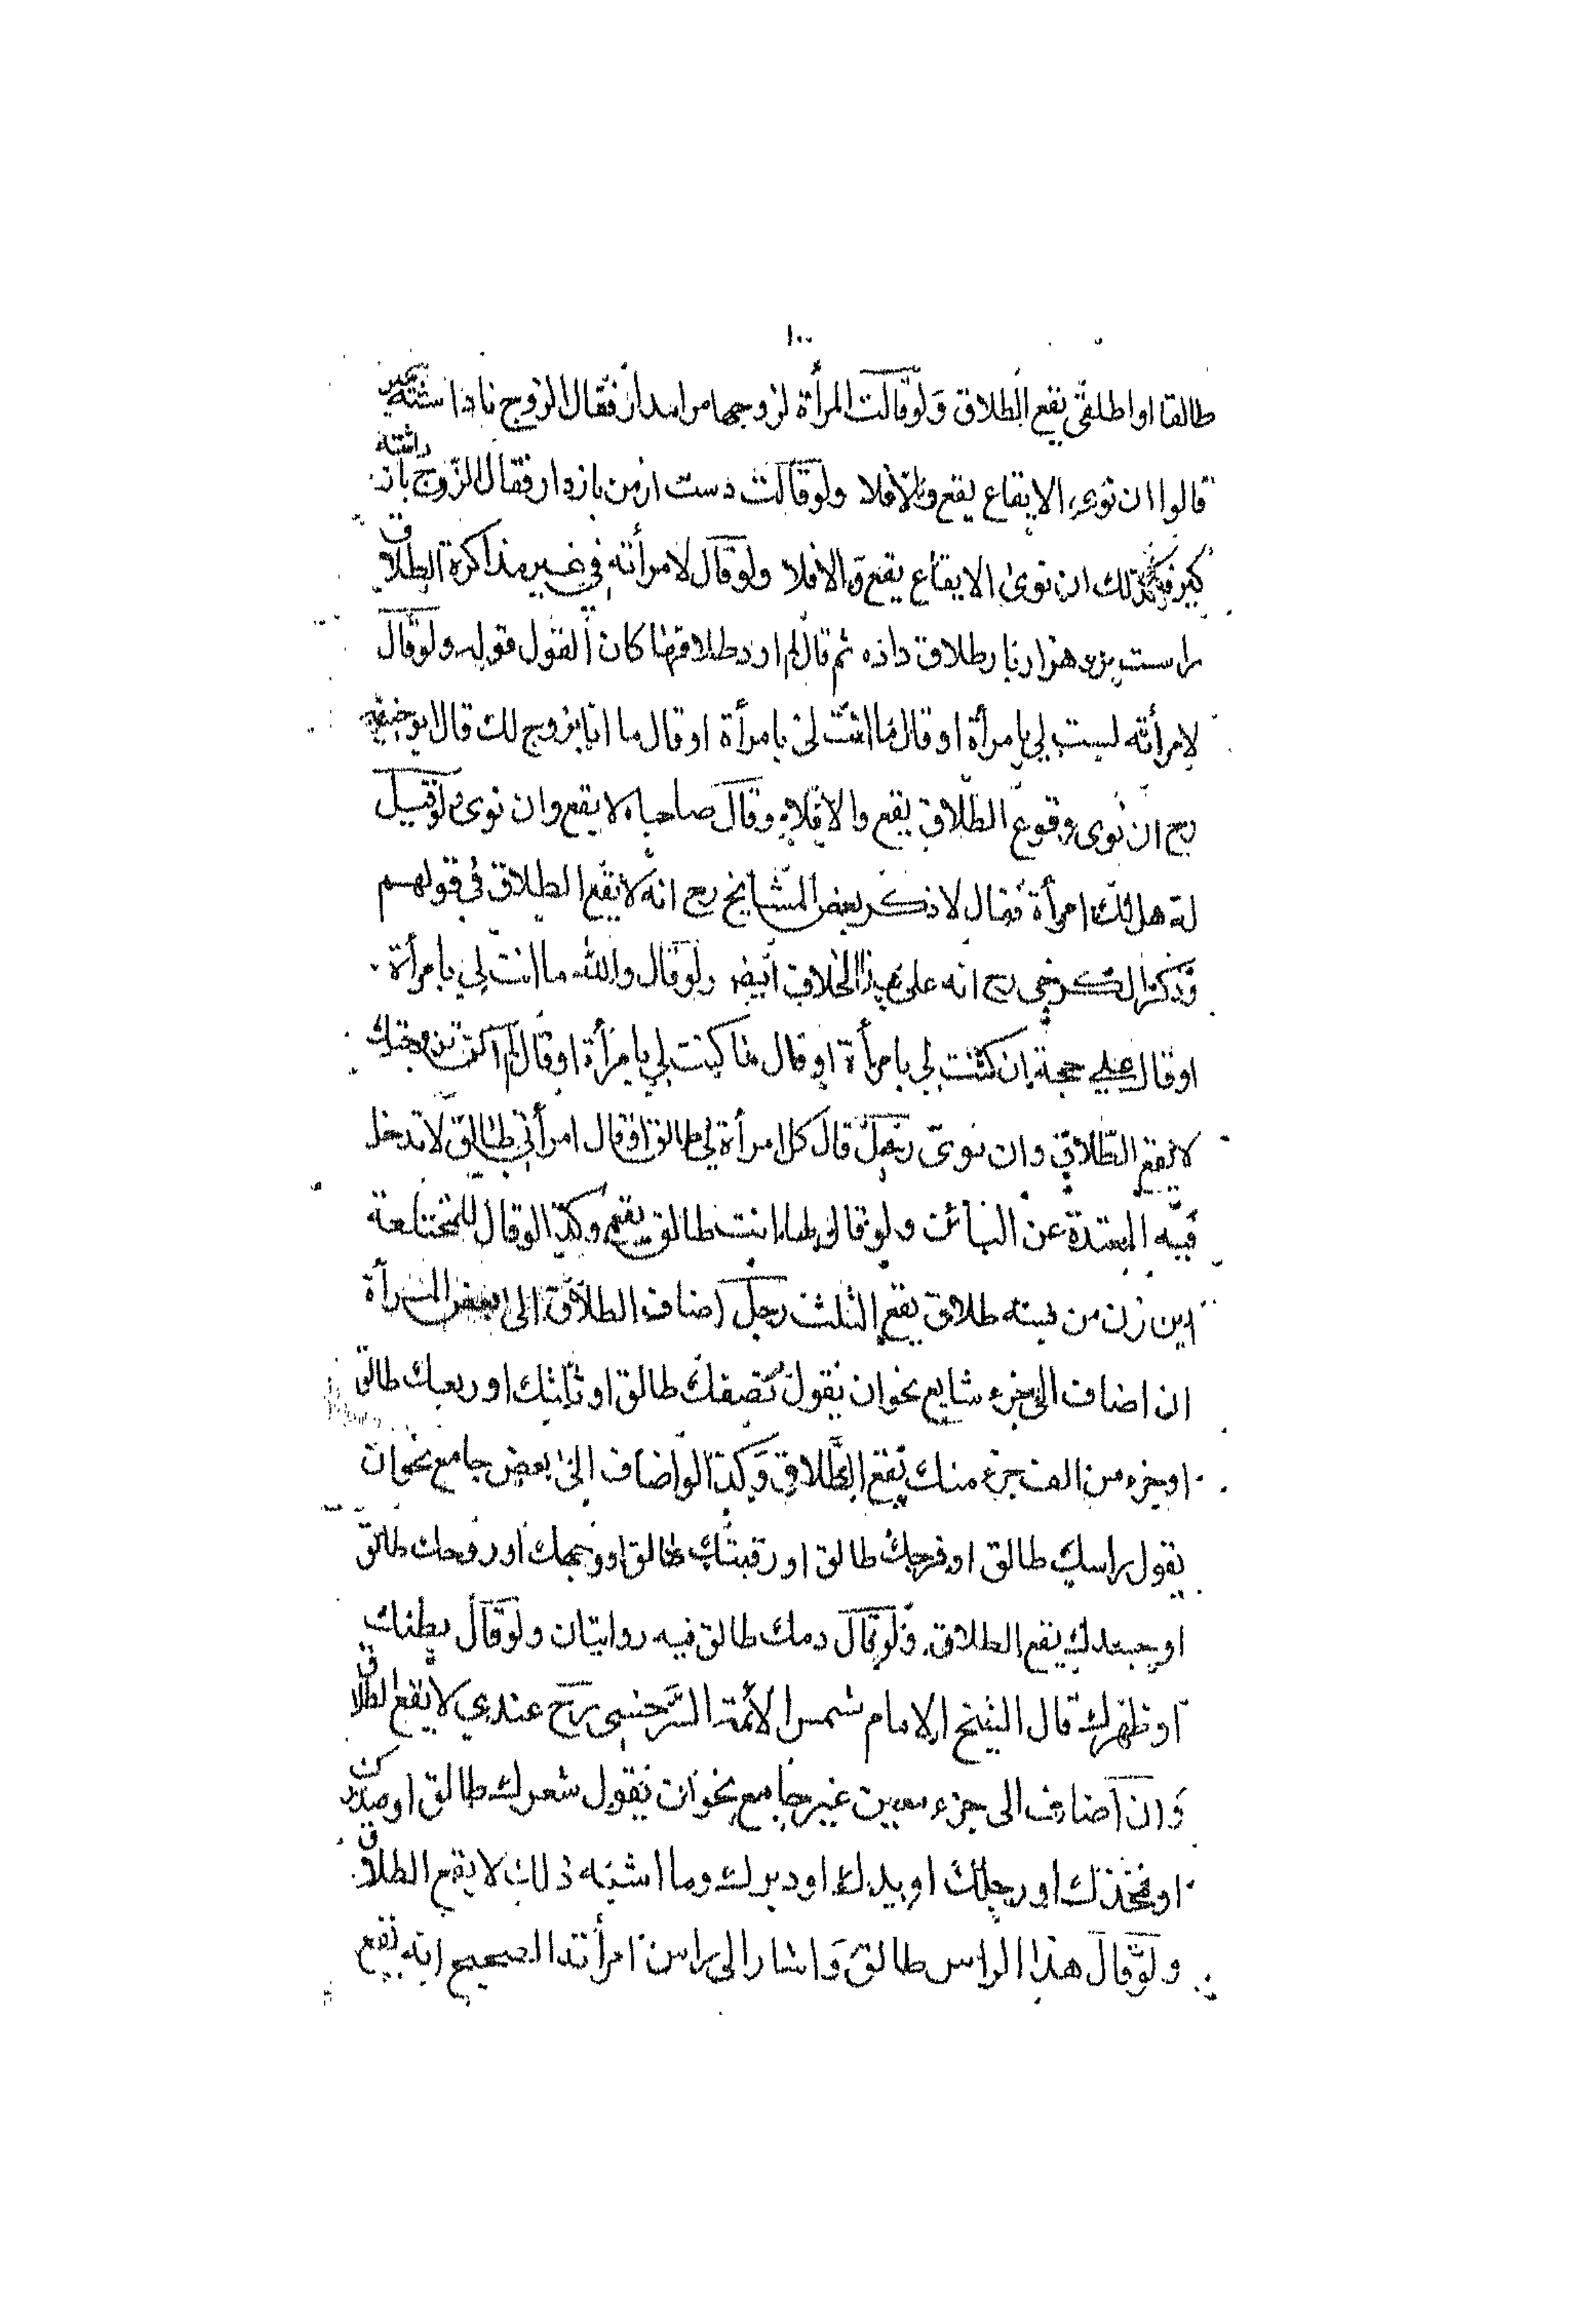 ١٠٠
طالقا او اطلقى يقع الطلاق ولو قالت المرأة لزوجها مرا مدار فقال الزوج ناداشته كير
قالوا ان نوى الايقاع يقع والا فلا ولو قالت دست از من بازدار فقال الزوج باز داشته
كير فكذلك ان نوى الايقاع يقع والا فلا ولو قال لامرأته في غير مذاكرة الطلاق
راست هزار بار طلاق داده ثم قال لم اود طلاقها كان القول قوله ولو قال
لامرأته لست لي بامرأة او قال ما انت لي بامرأة او قال ما انا بزوج لك قال ابو حنيفه
رح ان نوى وقوع الطلاق يقع والا فلا وقال صاحباه لا يقع وان نوى ولو قيل
له هل لك امرأة فقال لا ذكر بعض المشايخ رح انه لا يقع الطلاق في قولهم
وذكر الكرخي رح انه على هذا الخلاف ايضا ولو قال والله ما انت لي بامرأة
او قال علي حجة ان كنت لي بامرأة او قال ما كنت لي بامرأة او قال لم اكن تزوجتك
لا يقع الطلاق وان نوى رجل قال كل امرأة لي طالق او قال امرأتي طالق لا تدخل
فيه المعتدة عن البائن ولو قال لها انت طالق يقع وكذا لو قال للمختلعة
اين زن من بسه طلاق يقع الثلث رجل اضاف الطلاق الى بعض المرأة
ان اضاف الى جزء شايع نحو ان يقول نصفك طالق او ثلثك او ربعك طالق
او جزء من الف جزء منك يقع الطلاق وكذا لو اضاف الى بعض جامع نحو ان
يقول راسك طالق او فرجك طالق او رقبتك طالق او وجهك او روحك طالق
او جسدك يقع الطلاق ولو قال دمك طالق فيه روايتان ولو قال بطنك
او ظهرك قال الشيخ الامام شمس الأئمة السرخسي رح عندي لا يقع الطلاق
وان اضاف الى جزء معين غير جامع نحو ان يقول شعرك طالق او صدرك
او فخذك او رجلك او يدك او دبرك وما اشبه ذلك لا يقع الطلاق
ولو قال هذا الراس طالق واشار الى راس امرأته الصحيح انه يقع